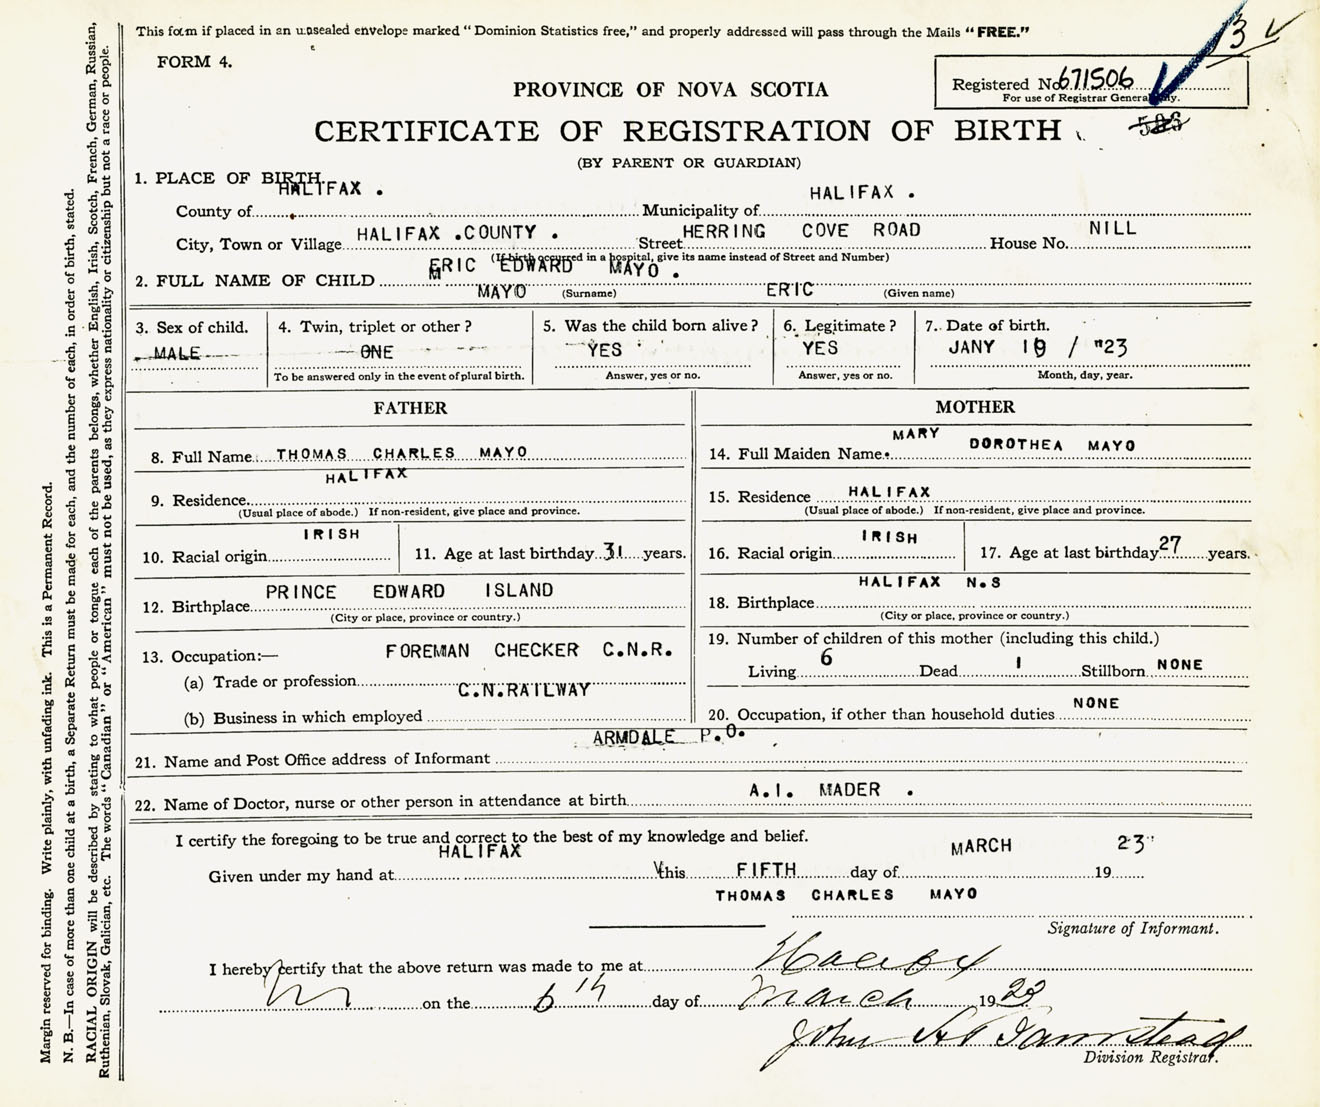 This form if placed in an unsealed envelope marked "Dominion Statistics free," and properly addressed will pass through the Mails "FREE."
13
FORM 4.
Registered No. 671506
For use of Registrar General only.
PROVINCE OF NOVA SCOTIA
CERTIFICATE OF REGISTRATION OF BIRTH
(BY PARENT OR GUARDIAN)
1. PLACE OF BIRTH.
HALIFAX . HALIFAX .
County of Municipality of
City, Town or Village HALIFAX .COUNTY . Street HERRING COVE ROAD House No. NILL
(If birth occurred in a hospital, give its name instead of Street and Number)
2. FULL NAME OF CHILD ERIC EDWARD MAYO .
MAYO (Surname) ERIC (Given name)
3. Sex of child. 4. Twin, triplet or other? 5. Was the child born alive? 6. Legitimate? 7. Date of birth.
MALE ONE YES YES JANY 19 / "23
To be answered only in the event of plural birth. Answer, yes or no. Answer, yes or no. Month, day, year.
FATHER
8. Full Name THOMAS CHARLES MAYO
HALIFAX
9. Residence
(Usual place of abode.) If non-resident, give place and province.
IRISH
10. Racial origin 11. Age at last birthday 31 years.
PRINCE EDWARD ISLAND
12. Birthplace
(City or place, province or country.)
13. Occupation:— FOREMAN CHECKER C.N.R.
(a) Trade or profession
C.N.RAILWAY
(b) Business in which employed
MOTHER
MARY DOROTHEA MAYO
14. Full Maiden Name
15. Residence HALIFAX
(Usual place of abode.) If non-resident, give place and province.
IRISH
16. Racial origin 17. Age at last birthday 27 years.
HALIFAX N.S
18. Birthplace
(City or place, province or country.)
19. Number of children of this mother (including this child.)
Living 6 Dead 1 Stillborn NONE
20. Occupation, if other than household duties NONE
ARMDALE P.O.
21. Name and Post Office address of Informant
22. Name of Doctor, nurse or other person in attendance at birth A.I. MADER .
I certify the foregoing to be true and correct to the best of my knowledge and belief.
HALIFAX MARCH 23"
Given under my hand at this FIFTH day of 19
THOMAS CHARLES MAYO
Signature of Informant.
I hereby certify that the above return was made to me at Halifax
on the 6th day of March 1923
John
Division Registrar.
Margin reserved for binding. Write plainly, with unfading ink. This is a Permanent Record.
N. B.—In case of more than one child at a birth, a Separate Return must be made for each, and the number of each, in order of birth, stated.
RACIAL ORIGIN will be described by stating to what people or tongue each of the parents belongs, whether English, Irish, Scotch, French, German, Russian,
Ruthenian, Slovak, Galician, etc. The words "Canadian" or "American" must not be used, as they express nationality or citizenship but not a race or people.